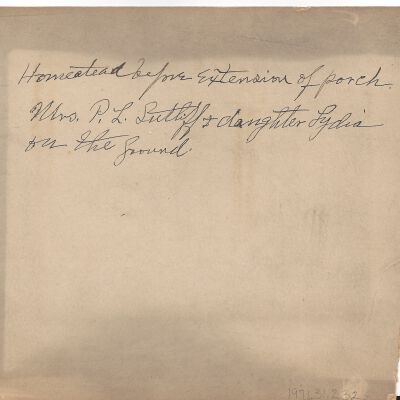 Homestead before Extension of porch.
Mrs. P. L. Sutliff & daughter Lydia
on the ground.